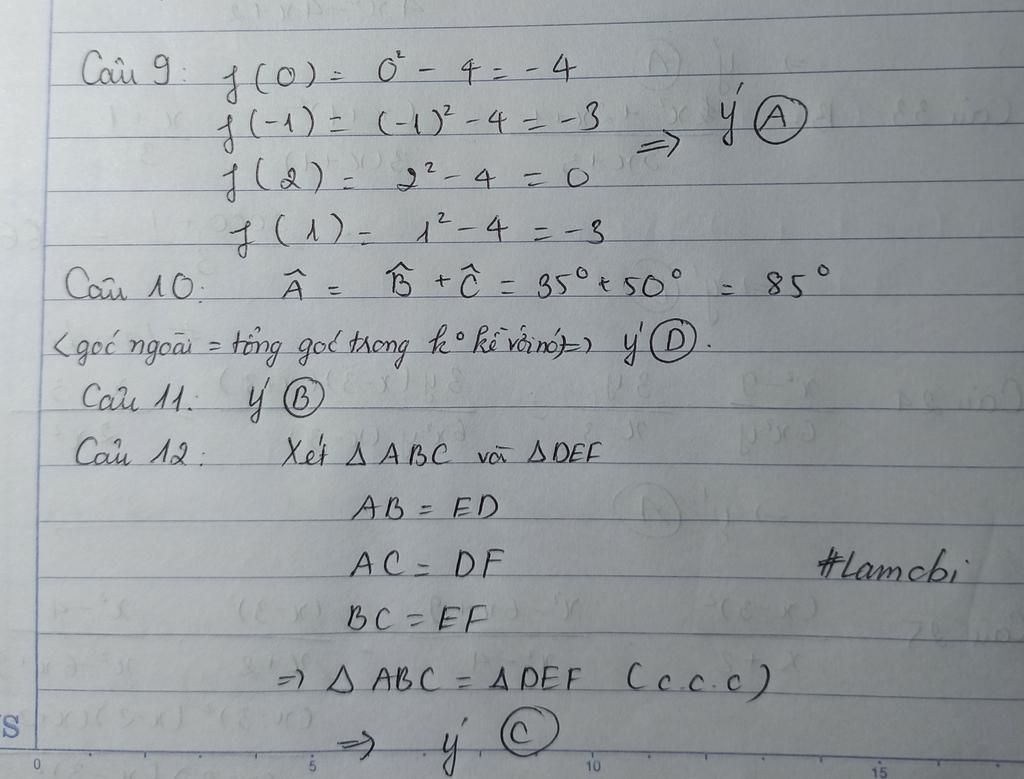 Câu 9: f(0) = 0² - 4 = -4
f(-1) = (-1)² - 4 = -3 => ý Ⓐ
f(2) = 2² - 4 = 0
f(1) = 1² - 4 = -3
Câu 10: Â = B̂ + Ĉ = 35° + 50° = 85°
<góc ngoài = tổng góc trong k° kề với nó> => ý Ⓓ.
Câu 11: ý Ⓑ
Câu 12: Xét Δ ABC và Δ DEF
AB = ED
AC = DF
#Lamcbi
BC = EF
=> Δ ABC = Δ DEF (c.c.c)
=> ý Ⓒ
S
0 5 10 15